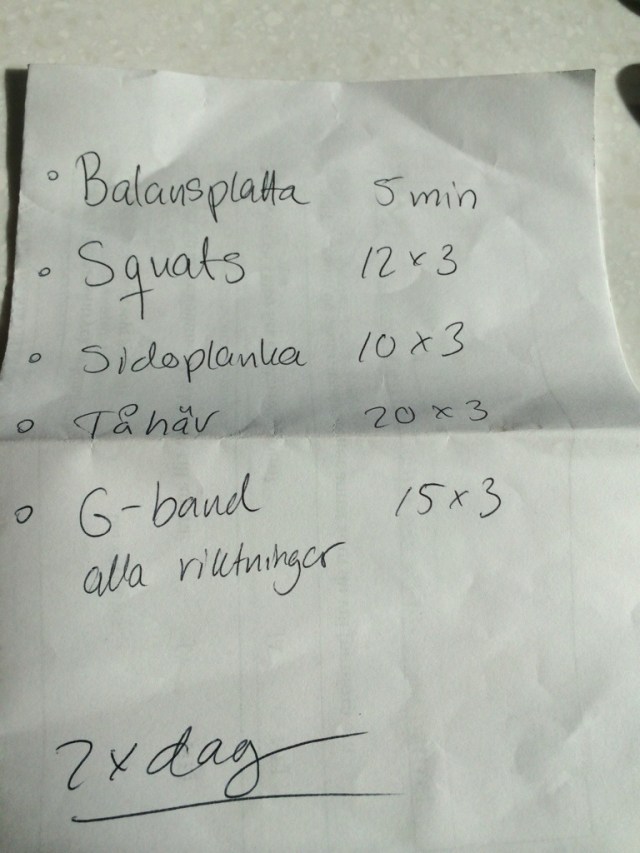 Balansplatta 5 min
Squats 12 x 3
Sidoplanka 10 x 3
Tåhäv 20 x 3
G-band 15 x 3
alla riktningar
2 x dag